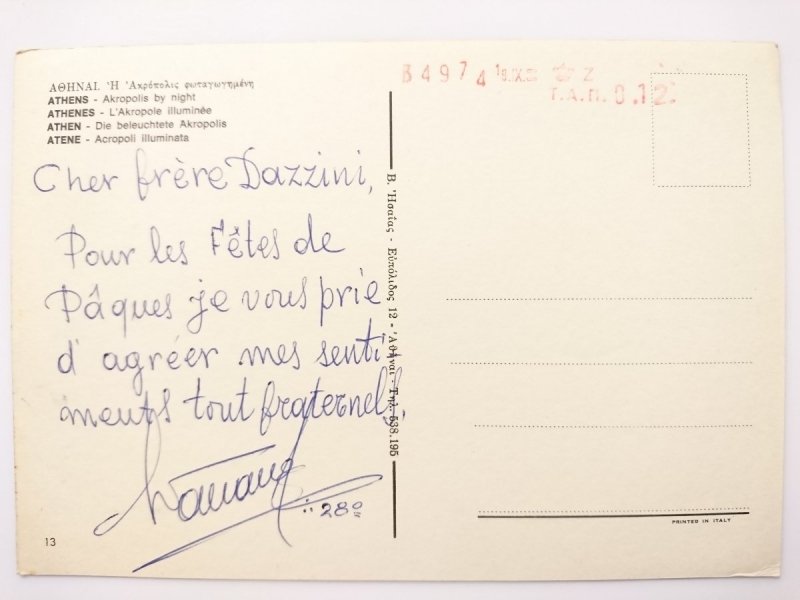 ΑΘΗΝΑΙ. Ἡ Ἀκρόπολις φωταγωγημένη
ATHENS - Akropolis by night
ATHENES - L'Akropole illuminée
ATHEN - Die beleuchtete Akropolis
ATENE - Acropoli illuminata
Cher frère Dazzini,
Pour les Fêtes de
Pâques je vous prie
d'agréer mes senti
ments tout fraternels.
28º
13
Β. Ἡσαΐας - Εὐπόλιδος 12 - Ἀθῆναι - Τηλ. 538.195
34974 Z
Τ.Α.Π. 0.12.
PRINTED IN ITALY